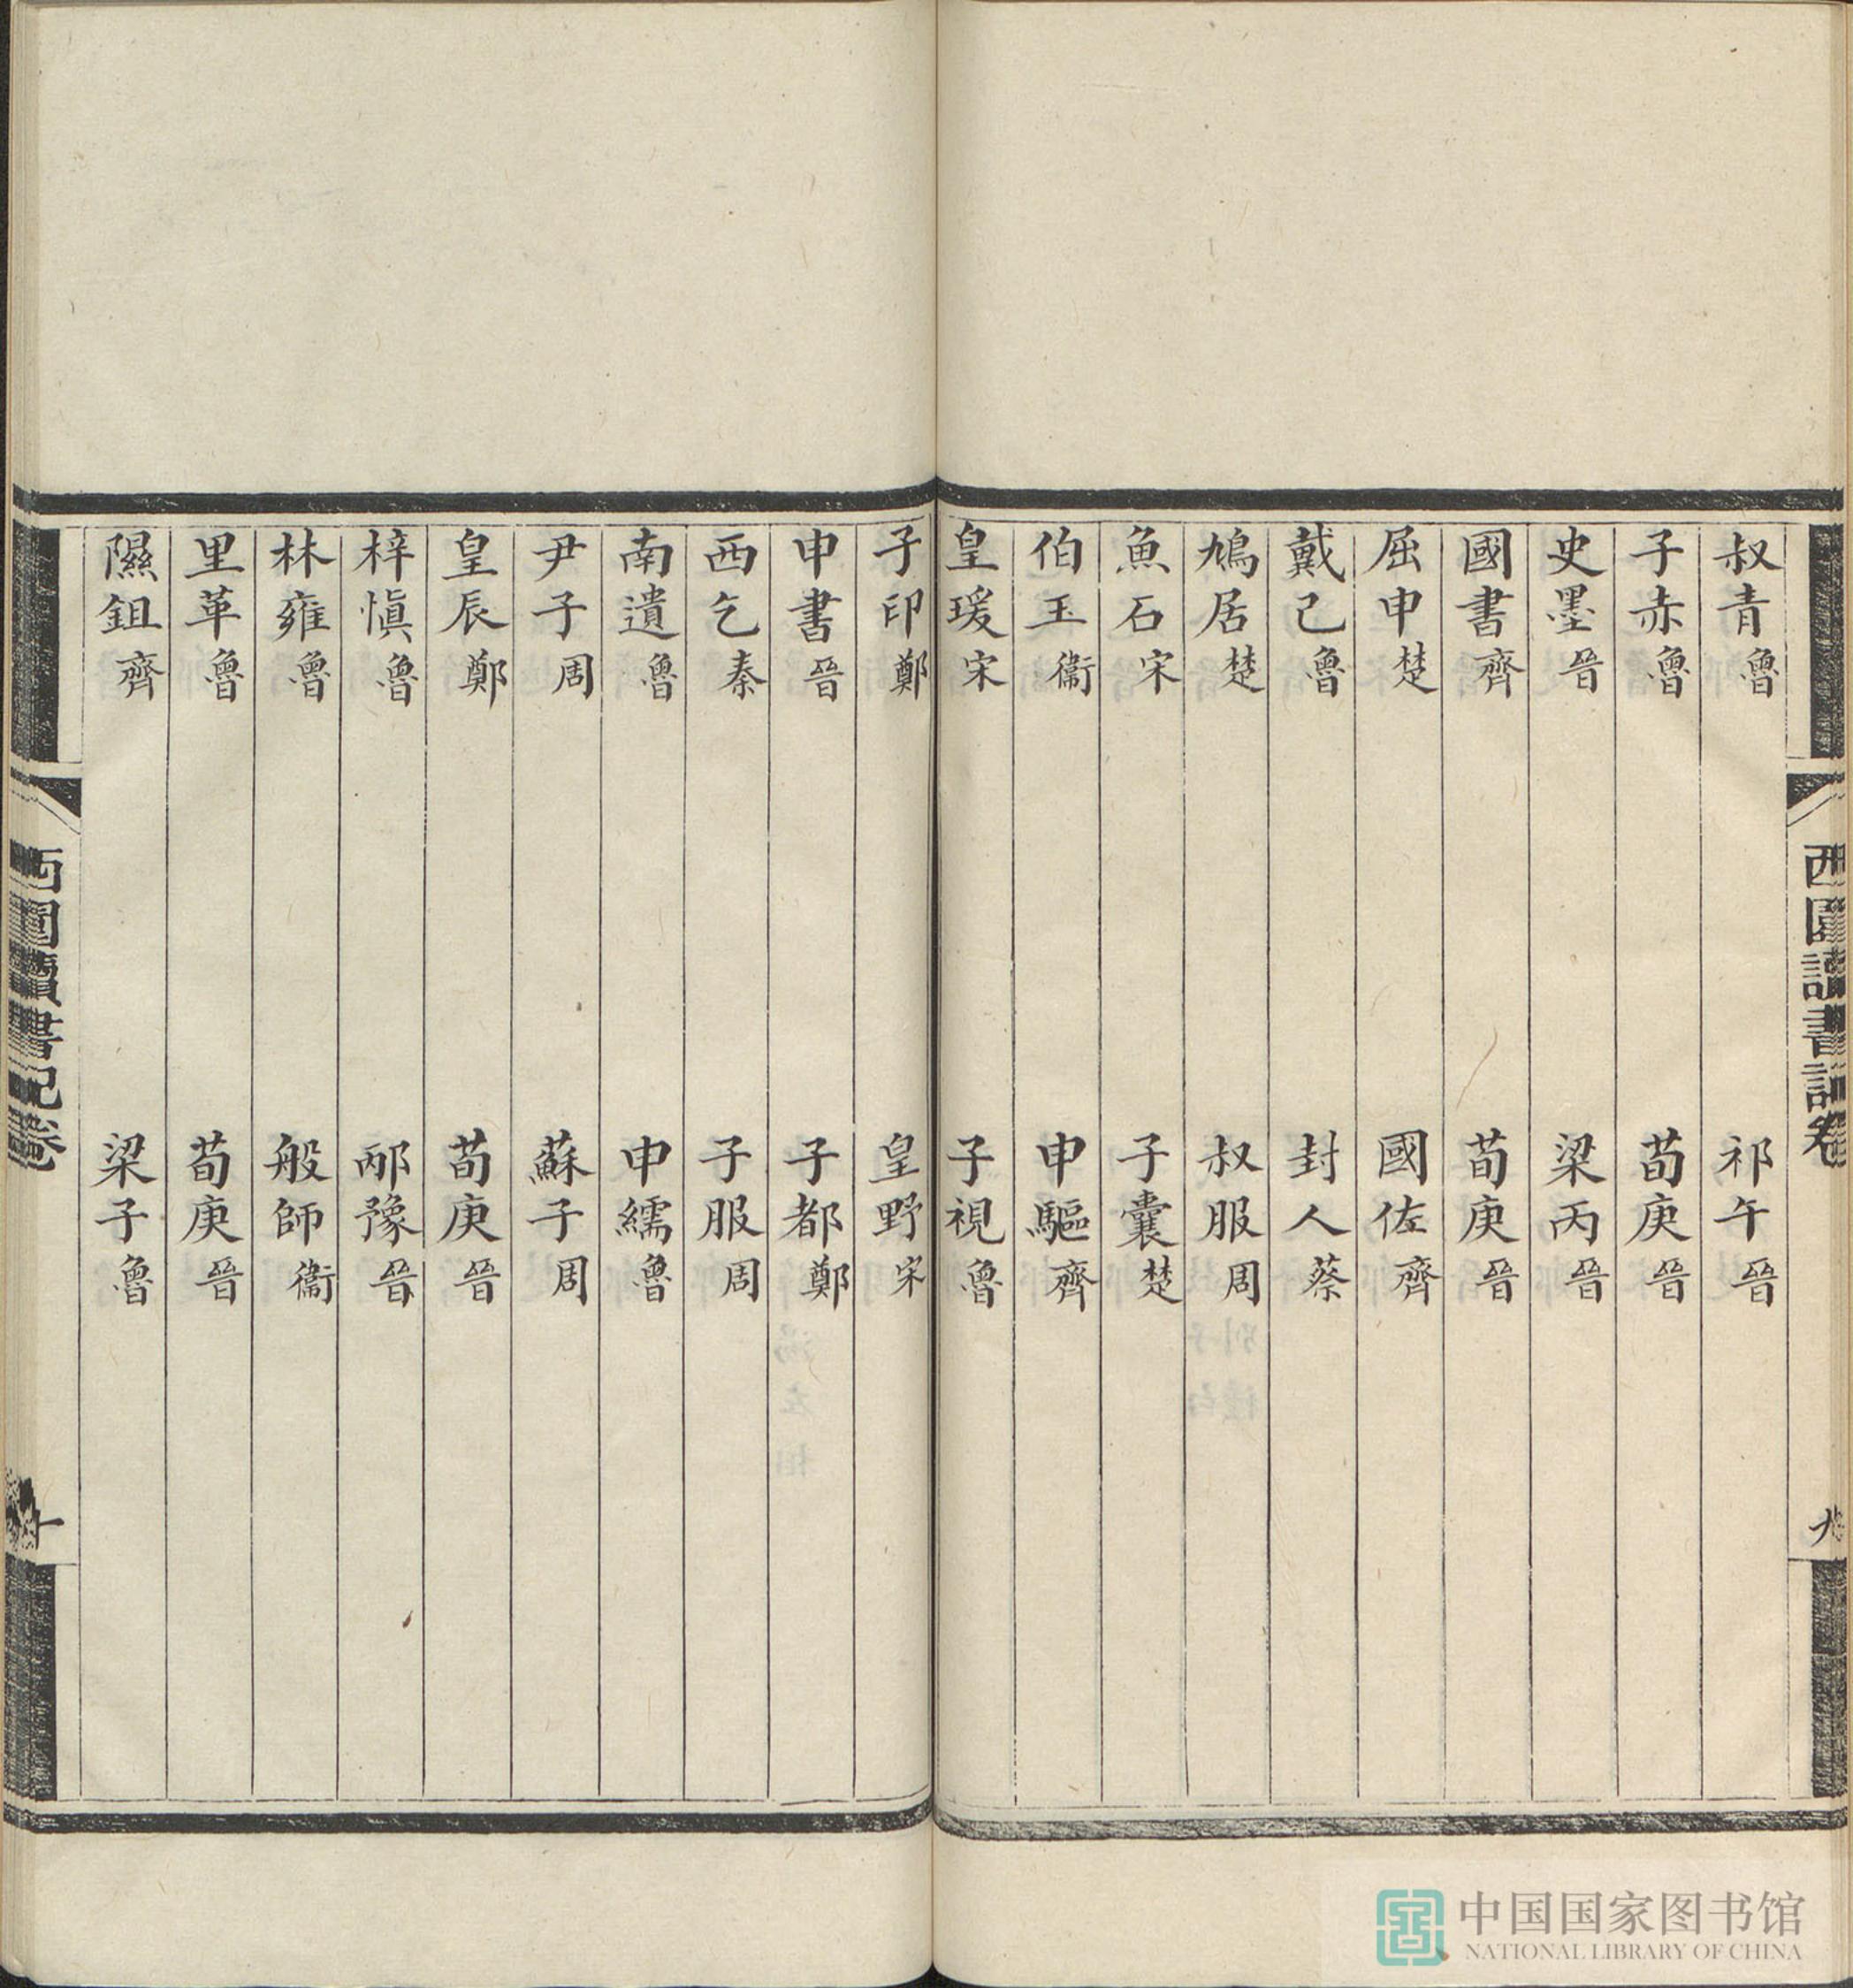 叔青魯 祁午晉
子赤魯 荀庚晉
史墨晉 梁丙晉
國書齊 荀庚晉
屈申楚 國佐齊
戴己魯 封人蔡
鳩居楚 叔服周
魚石宋 子囊楚
伯玉衞 申驅齊
皇瑗宋 子視魯
西園讀書記卷
九
子印鄭 皇野宋
申書晉 子都鄭
西乞秦 子服周
南遺魯 申繻魯
尹子周 蘇子周
皇辰鄭 荀庚晉
梓慎魯 邴豫晉
林雍魯 般師衞
里革魯 荀庚晉
隰鉏齊 梁子魯
西園讀書記卷
中国国家图书馆
NATIONAL LIBRARY OF CHINA